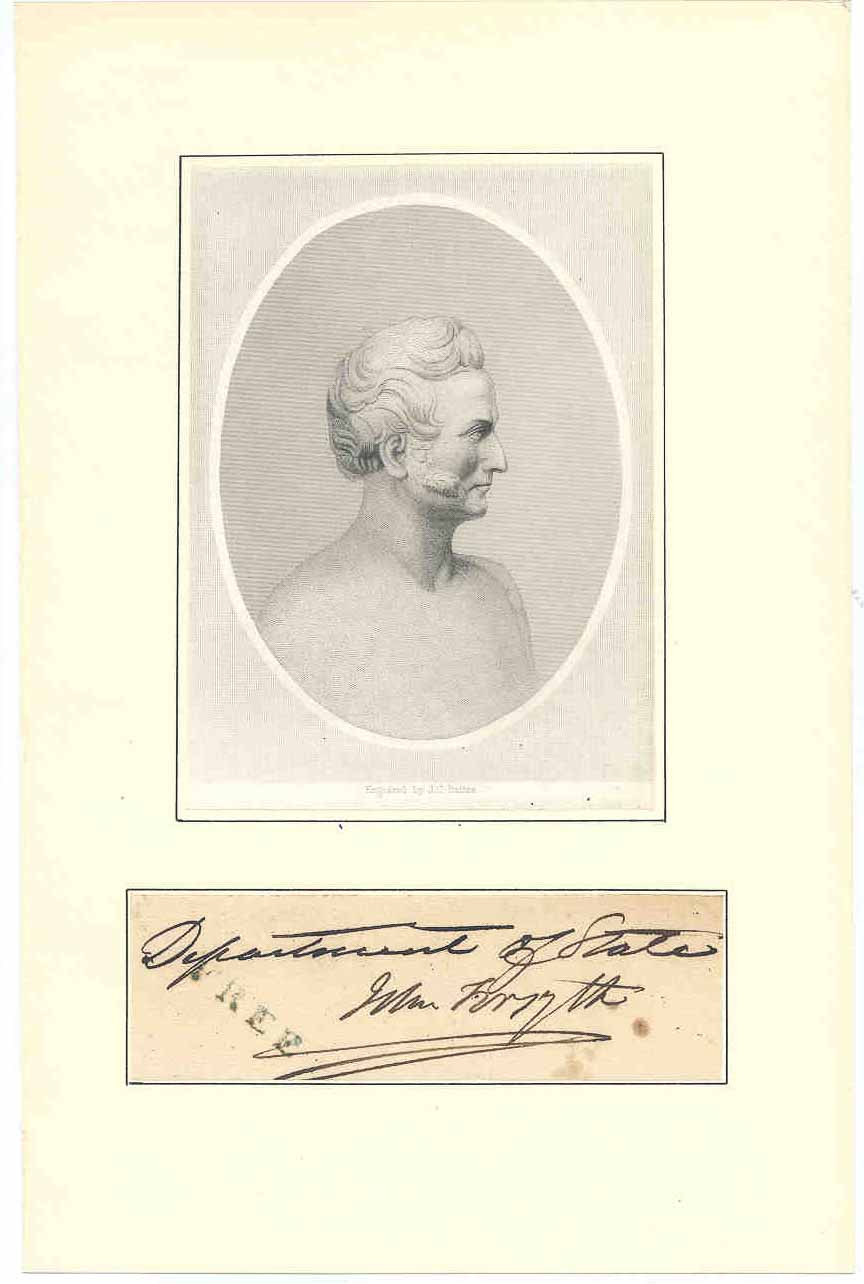 Engraved by
Department of State
John Forsyth
FREE